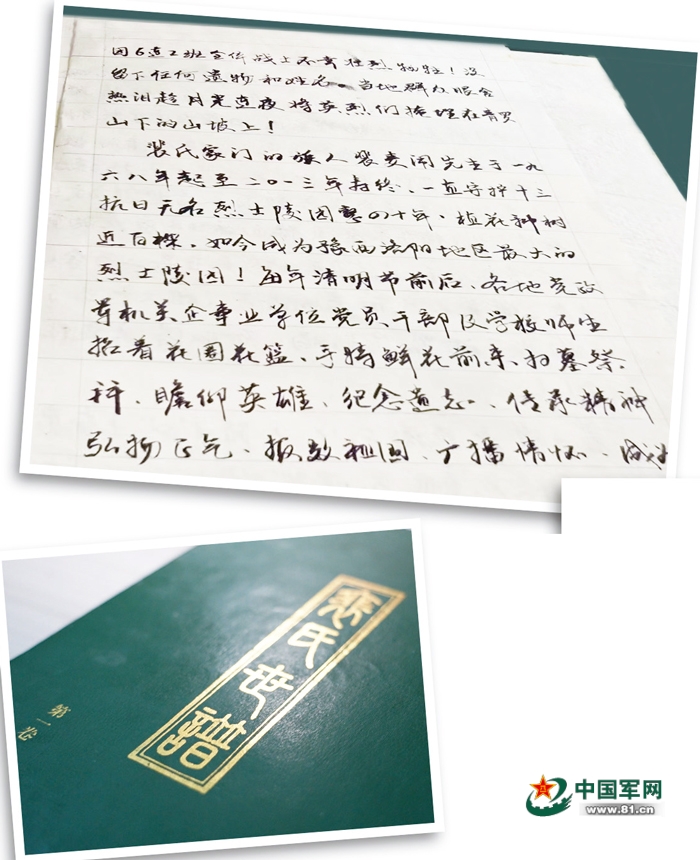 团6连2班全体战士不幸壮烈牺牲！没
留下任何遗物和姓名。当地群众眼含
热泪趁月光连夜将英烈们掩埋在青
山下的山坡上！
裴氏家门的族人裴先生于一九
六八年起至二〇一三年，一直守护十三
抗日无名烈士陵园四十年，植花种树
近百棵，如今成为豫西洛阳地区最大的
烈士陵园！每年清明节前后，各地党政
军机关企事业单位党员干部及学校师生
抬着花圈花篮、手持鲜花前来扫墓祭
拜、瞻仰英雄、纪念遗志、传承精神
弘扬正气、报效祖国、广播情怀、
裴氏世譜
第一卷
中国军网
www.81.cn